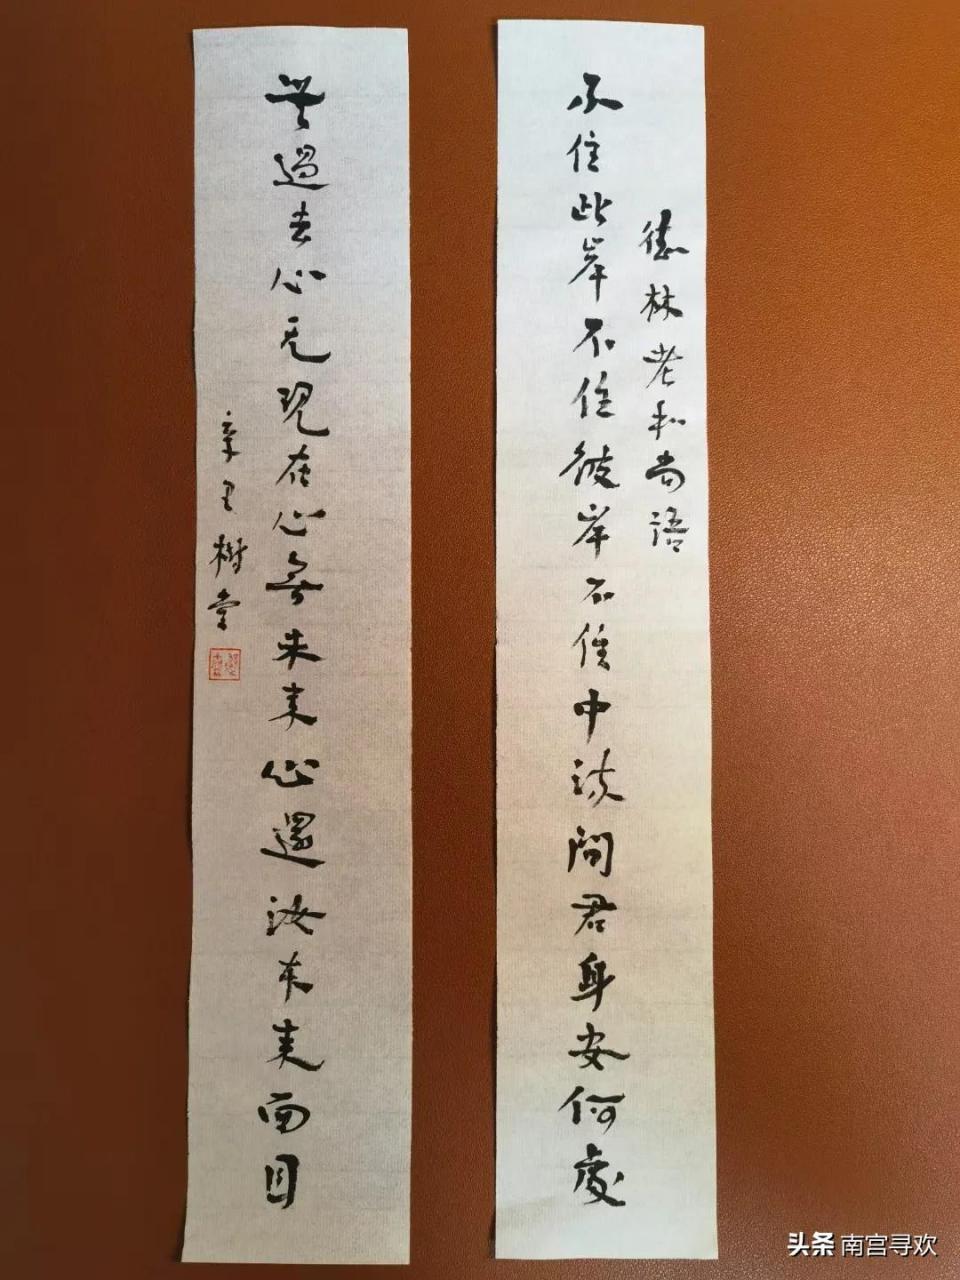 德林老和尚語
不住此岸不住彼岸不住中流問君身安何處
無過去心无現在心無未来心還汝本来面目
辛丑樹堂
头条 南宫寻欢